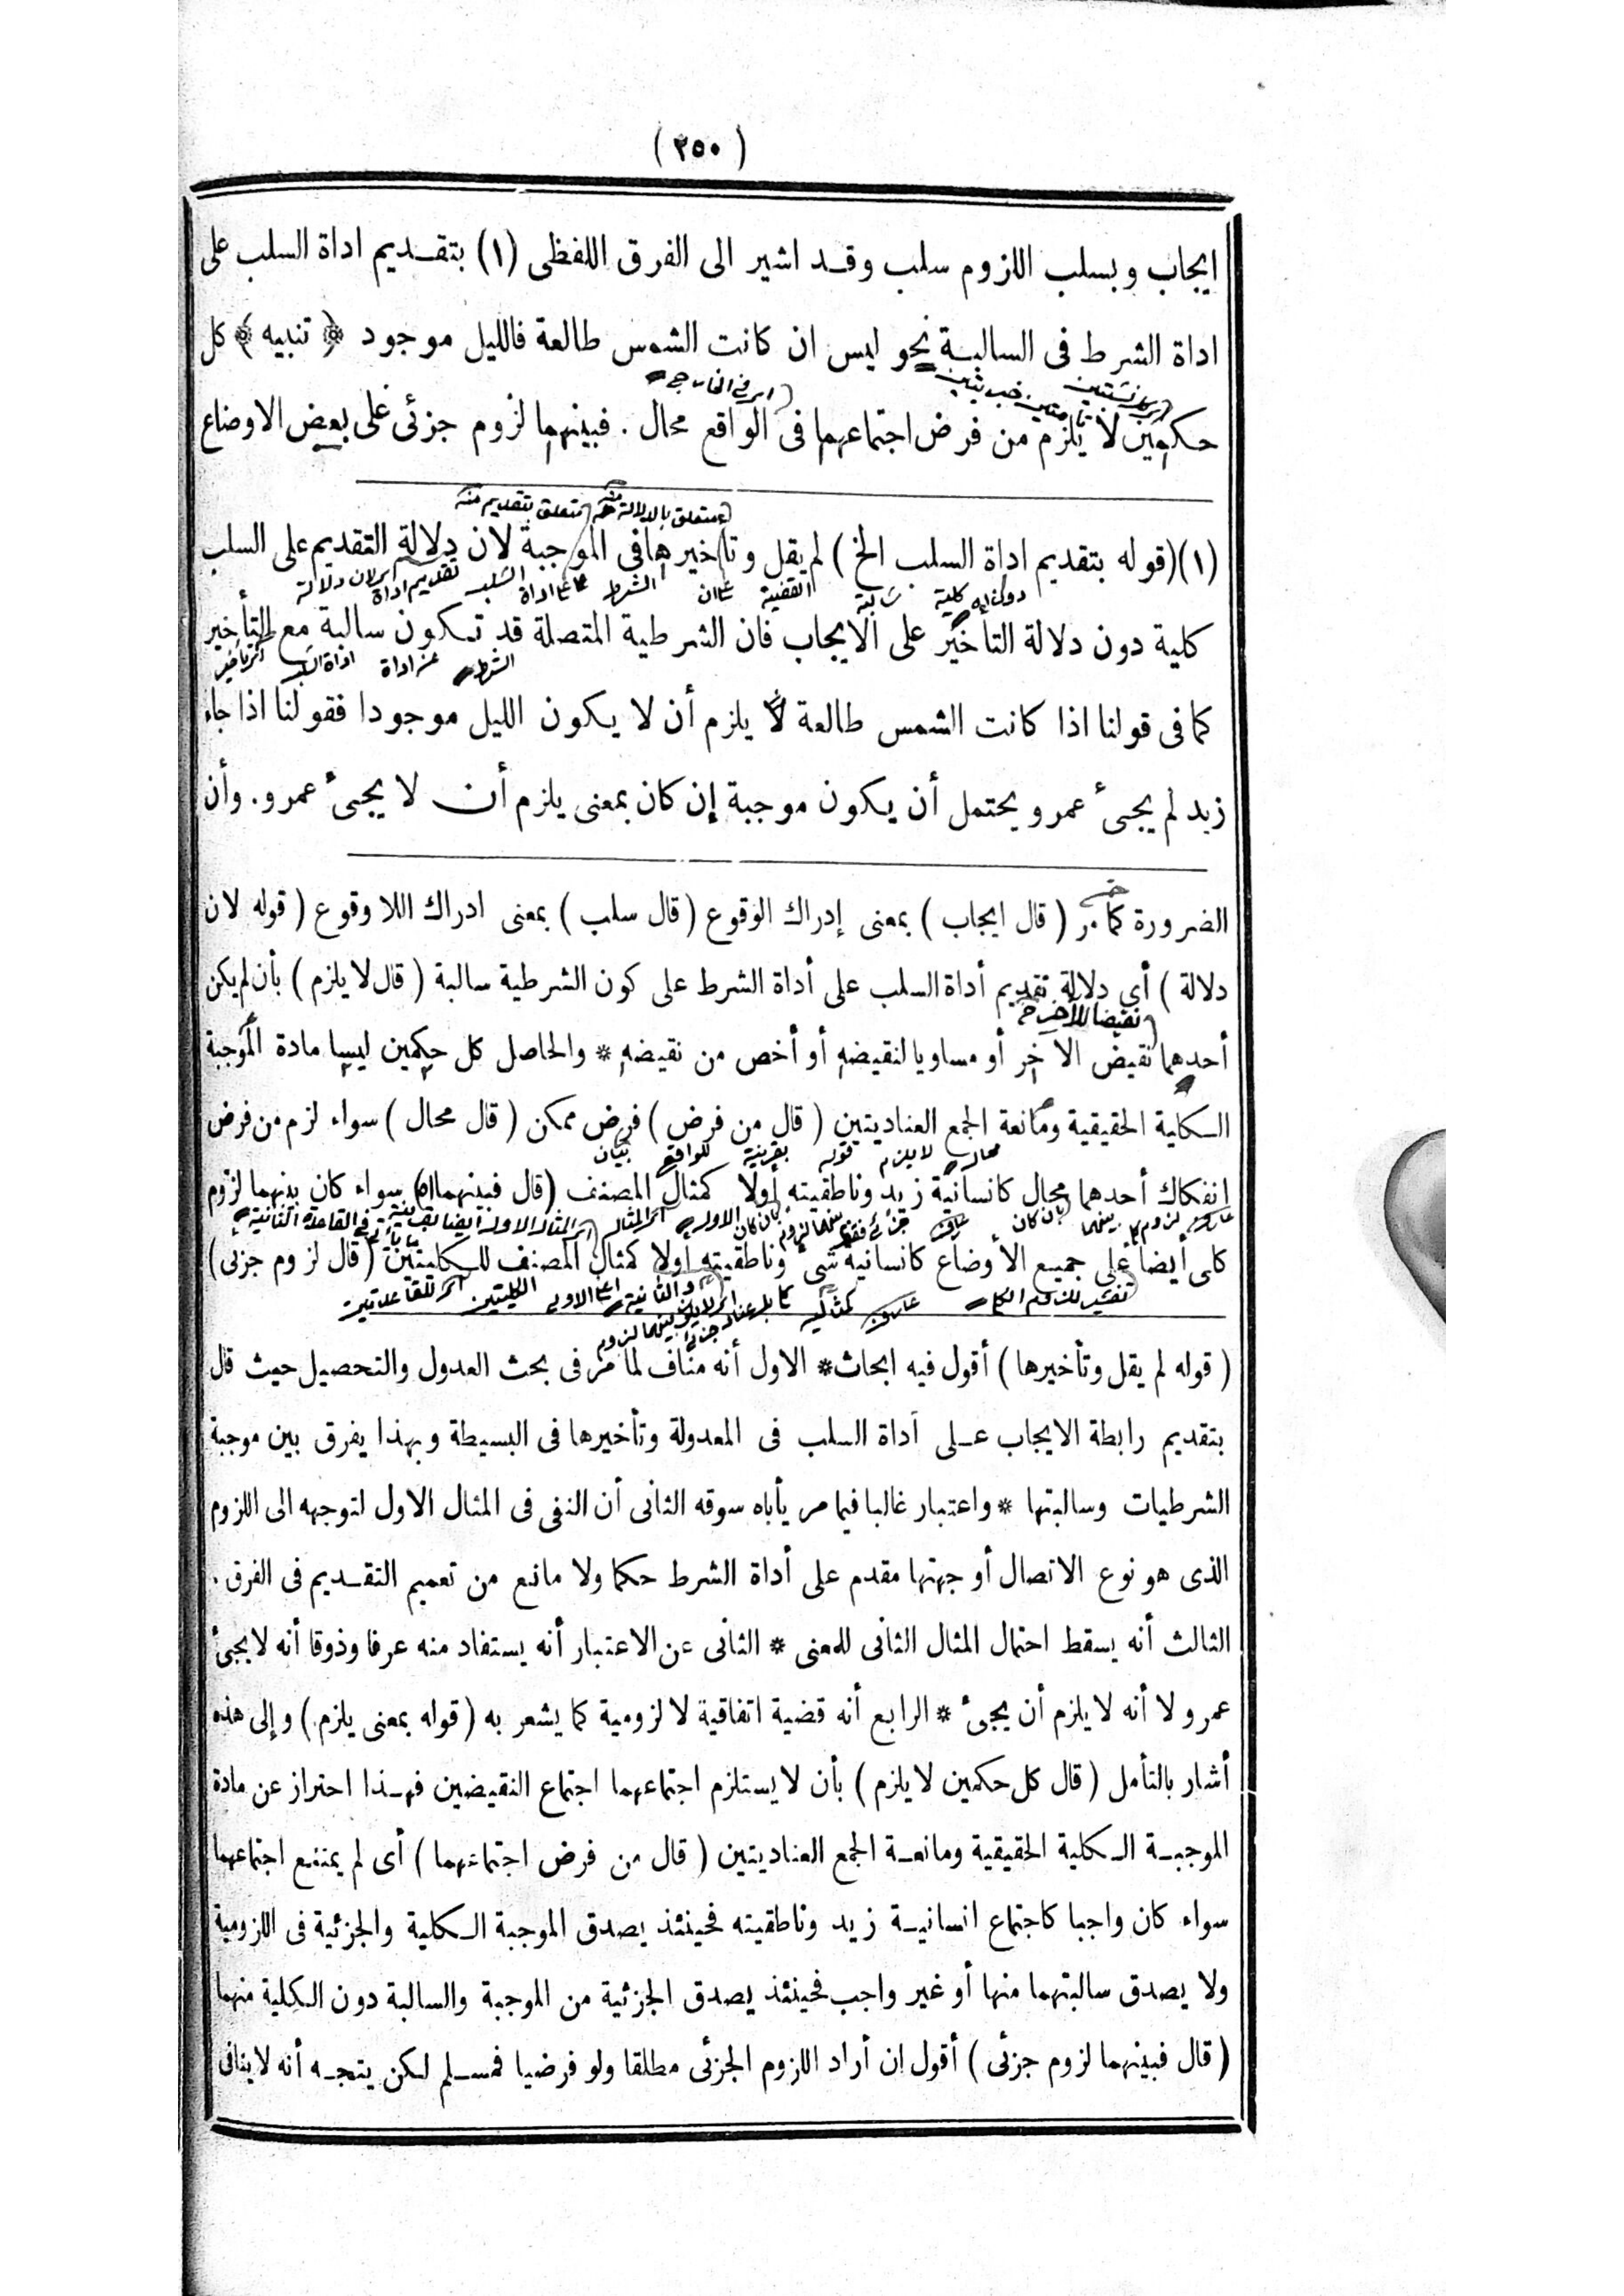 ( ٢٥٠ )
ايجاب وبسلب اللزوم سلب وقد اشير الى الفرق اللفظى (١) بتقديم اداة السلب على
اداة الشرط فى السالبة نحو ليس ان كانت الشمس طالعة فالليل موجود ﴿ تنبيه ﴾ كل
اى فى الخارج
حكمين لا يلزم من فرض اجتماعهما فى الواقع محال . فبينهما لزوم جزئى على بعض الاوضاع
متعلق بالدلالة منه متعلق بتقديم منه
(١) (قوله بتقديم اداة السلب الخ ) لم يقل وتأخيرها فى الموجبة لان دلالة التقديم على السلب
كلية سالبة القضية الشرط اداة السلب تقديم اداة اى لان دلالة
كلية دون دلالة التأخير على الايجاب فان الشرطية المتصلة قد تكون سالبة مع التأخير
الشرط عن اداة اداة السلب
كما فى قولنا اذا كانت الشمس طالعة لا يلزم أن لا يكون الليل موجودا فقولنا اذا جاء
زيد لم يجىء عمرو يحتمل أن يكون موجبة إن كان بمعنى يلزم أن لا يجىء عمرو. وأن
الضرورة كما مر ( قال ايجاب ) بمعنى إدراك الوقوع ( قال سلب ) بمعنى ادراك اللا وقوع ( قوله لان
دلالة ) أى دلالة تقديم أداة السلب على أداة الشرط على كون الشرطية سالبة ( قال لا يلزم ) بأن لم يكن
نقيضا للآخر
أحدهما نقيض الآخر أو مساويا لنقيضه أو أخص من نقيضه * والحاصل كل حكمين ليسا مادة الموجبة
الكلية الحقيقية ومانعة الجمع العناديتين ( قال من فرض ) فرض ممكن ( قال محال ) سواء لزم من فرض
محال لا يلزم قوله بقرينة للواقع بيان
انفكاك أحدهما محال كانسانية زيد وناطقيته أولا كمثال المصنف ( قال فبينهما اه) سواء كان بينهما لزوم
كلى أيضا على جميع الأوضاع كانسانية شئ وناطقيته اولا كمثال المصنف للكليتين ( قال لزوم جزئى )
( قوله لم يقل وتأخيرها ) أقول فيه ابحاث* الاول أنه مناف لما مر فى بحث العدول والتحصيل حيث قال
بتقديم رابطة الايجاب على أداة السلب فى المعدولة وتأخيرها فى البسيطة وبهذا يفرق بين موجبة
الشرطيات وسالبتها * واعتبار غالبا فيما مر يأباه سوقه الثانى أن النفى فى المثال الاول لتوجهه الى اللزوم
الذى هو نوع الاتصال أو جهتها مقدم على أداة الشرط حكما ولا مانع من تعميم التقديم فى الفرق .
الثالث أنه يسقط احتمال المثال الثانى للمعنى * الثانى عن الاعتبار أنه يستفاد منه عرفا وذوقا أنه لا يجىء
عمرو لا أنه لا يلزم أن يجئ * الرابع أنه قضية اتفاقية لا لزومية كما يشعر به ( قوله بمعنى يلزم ) وإلى هذه
أشار بالتأمل ( قال كل حكمين لا يلزم ) بأن لا يستلزم اجتماعهما اجتماع النقيضين فهذا احتراز عن مادة
الموجبة الكلية الحقيقية ومانعة الجمع العناديتين ( قال من فرض اجتماعهما ) أى لم يمتنع اجتماعهما
سواء كان واجبا كاجتماع انسانية زيد وناطقيته فحينئذ يصدق الموجبة الكلية والجزئية فى اللزومية
ولا يصدق سالبتهما منها أو غير واجب فحينئذ يصدق الجزئية من الموجبة والسالبة دون الكلية منهما
( قال فبينهما لزوم جزئى ) أقول ان أراد اللزوم الجزئى مطلقا ولو فرضيا فمسلم لكن يتجه أنه لا ينافى